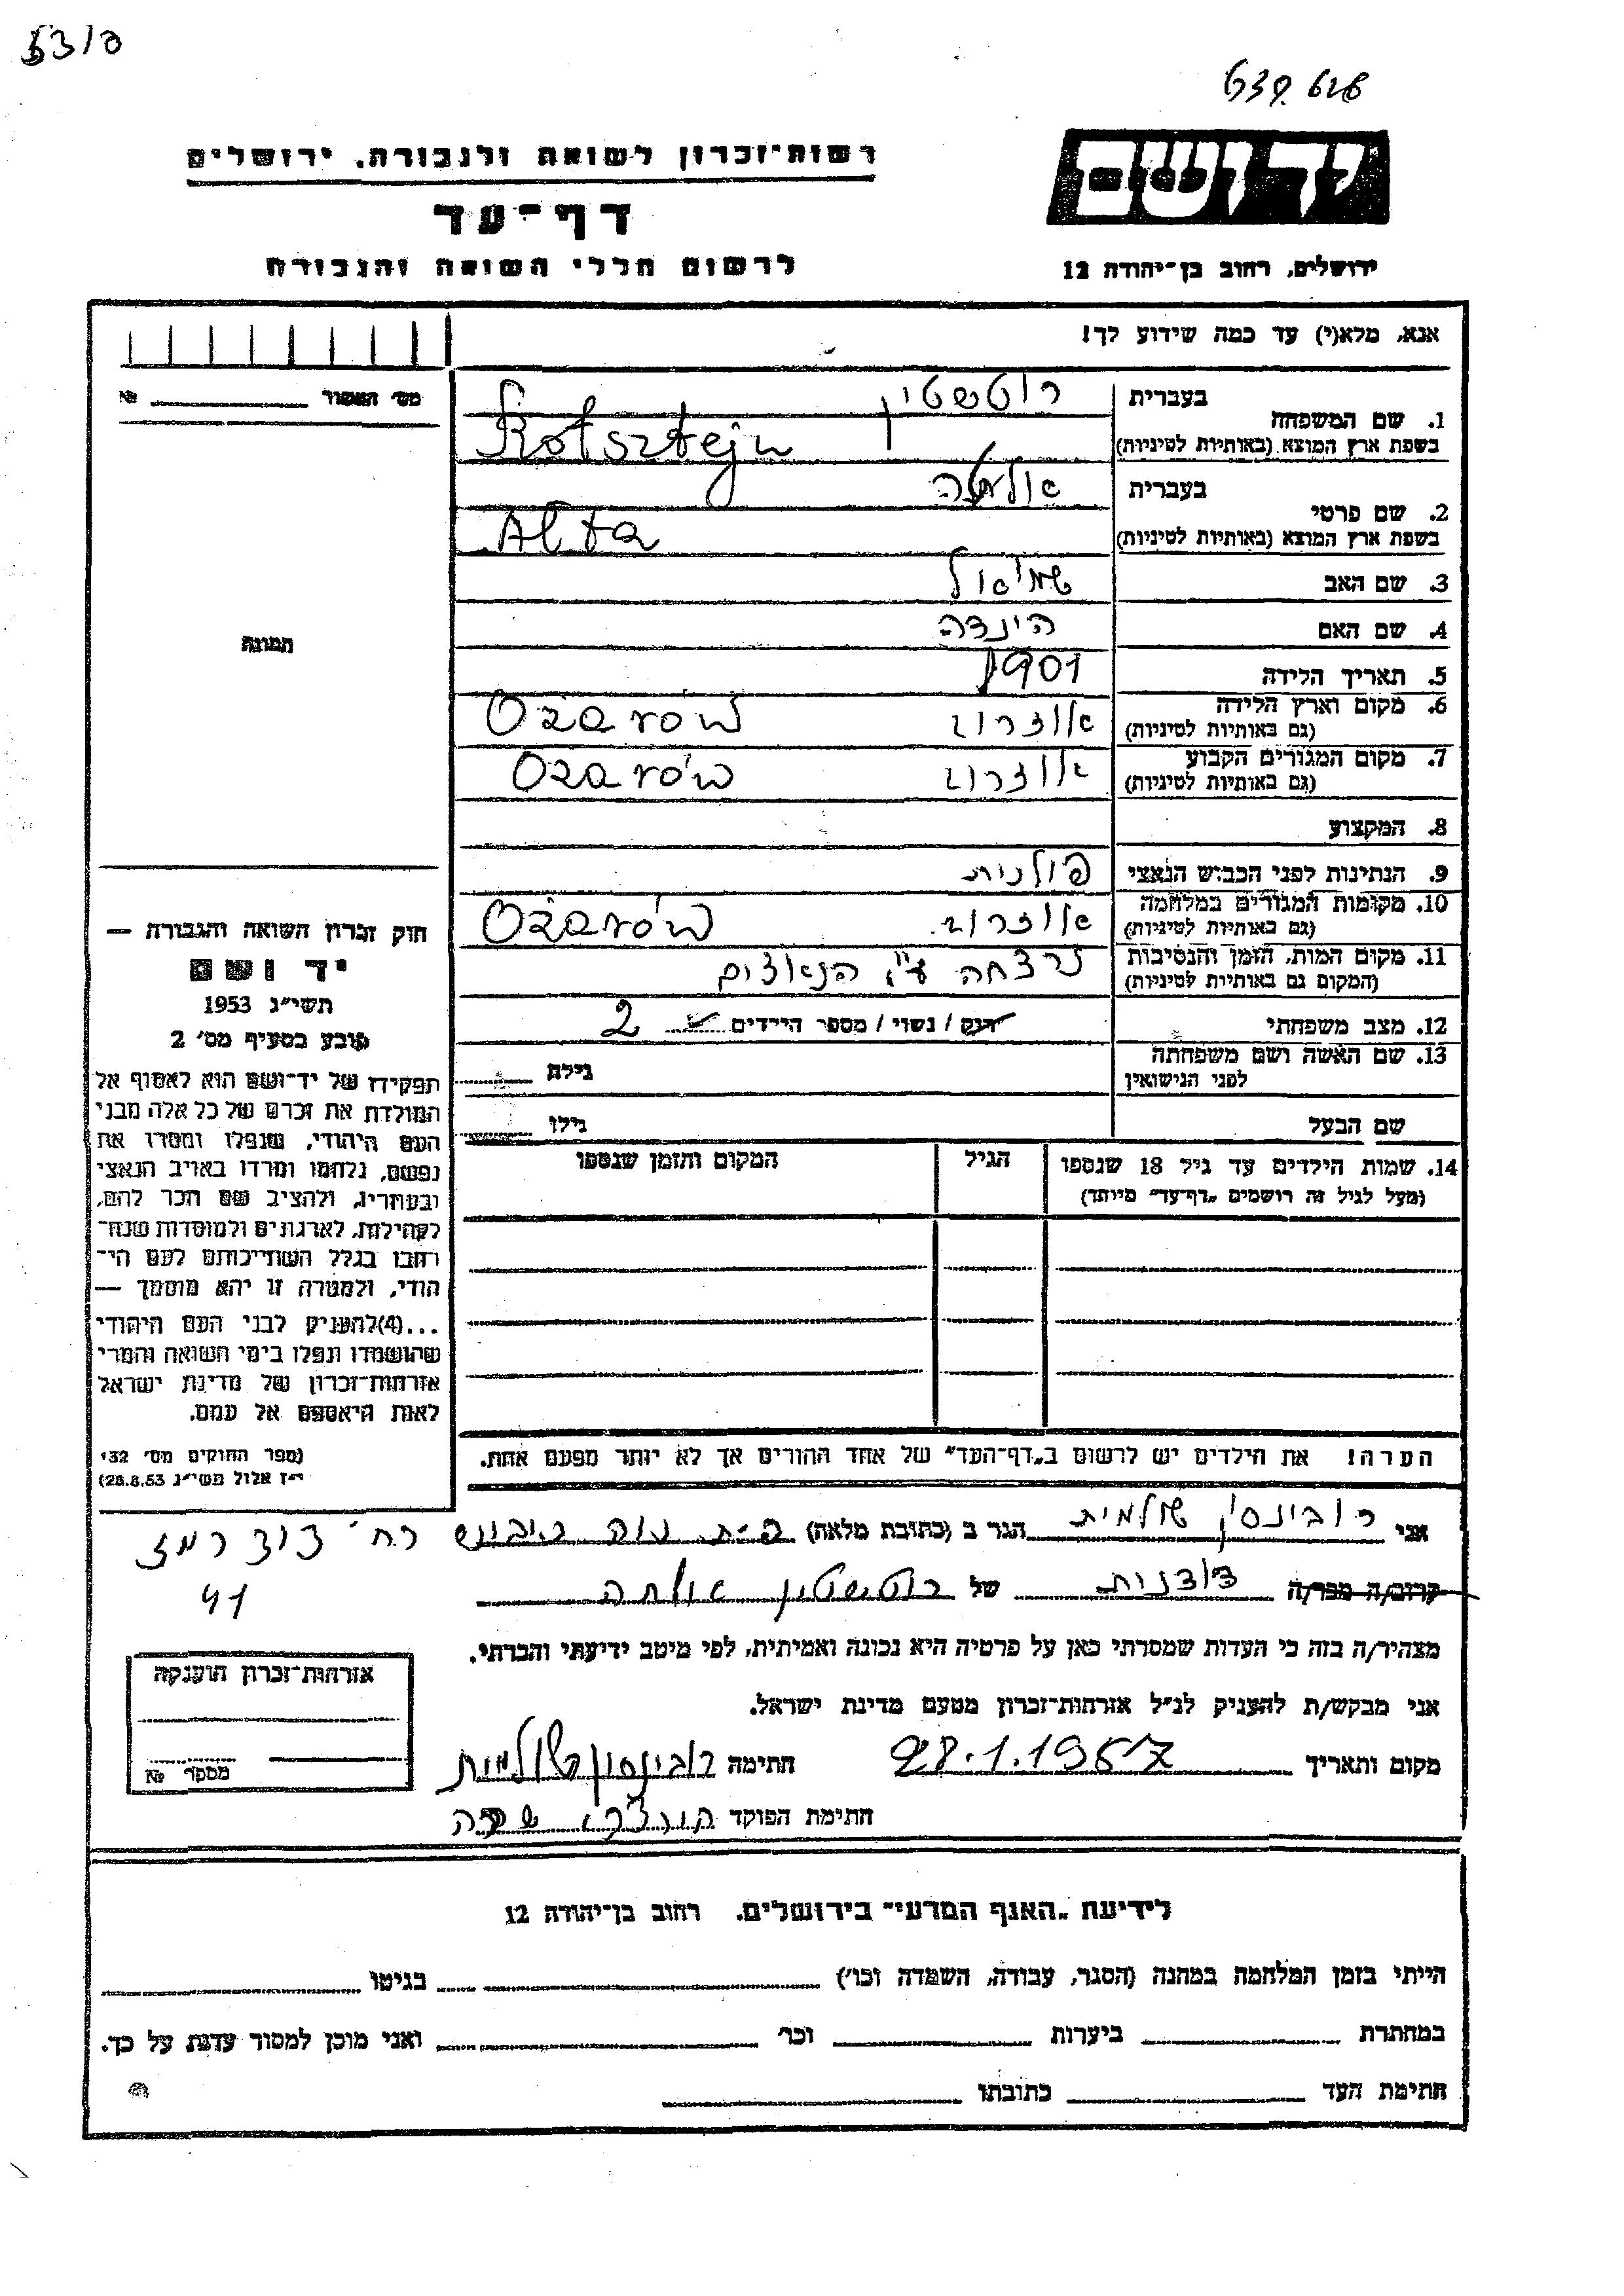 5310
639.628
יד ושם
ירושלים, רחוב בן־יהודה 12
רשות־זכרון לשואה ולגבורה, ירושלים
דף־עד
לרשום חללי השואה והגבורה
אנא, מלא(י) עד כמה שידוע לך!
מס' האשור № ________
תמונה
1. שם המשפחה בעברית רוטשטין
בשפת ארץ המוצא (באותיות לטיניות) Rotsztejn
2. שם פרטי בעברית אולטה
בשפת ארץ המוצא (באותיות לטיניות) Alta
3. שם האב שמיאול
4. שם האם הינדה
5. תאריך הלידה 1901
6. מקום וארץ הלידה (גם באותיות לטיניות) אוזרוב Ożarów
7. מקום המגורים הקבוע (גם באותיות לטיניות) אוזרוב Ożarów
8. המקצוע
9. הנתינות לפני הכבוש הנאצי פולנית
10. מקומות המגורים במלחמה (גם באותיות לטיניות) אוזרוב Ożarów
11. מקום המות, הזמן והנסיבות (המקום גם באותיות לטיניות) נרצחה ע"י הנאצים
12. מצב משפחתי רוק / נשוי / מספר הילדים 2
13. שם האשה ושם משפחתה לפני הנישואין גילה
שם הבעל גילו
14. שמות הילדים עד גיל 18 שנספו
(מעל לגיל זה רושמים „דף־עד" מיוחד)
הגיל
המקום והזמן שנספו
חוק זכרון השואה והגבורה —
יד ושם
תשי"ג 1953
קובע בסעיף מס' 2
תפקידו של יד־ושם הוא לאסוף אל
המולדת את זכרם של כל אלה מבני
העם היהודי, שנפלו ומסרו את
נפשם, נלחמו ומרדו באויב הנאצי
ובעוזריו, ולהציב שם וזכר להם,
לקהילות, לארגונים ולמוסדות שנח־
רחבו בגלל השתייכותם לעם הי־
הודי, ולמטרה זו יהא מוסמך —
...(4)להעניק לבני העם היהודי
שהושמדו ונפלו בימי השואה והמרי
אזרחות־זכרון של מדינת ישראל
לאות היאספם אל עמם.
(ספר החוקים מס' 132
י"ז אלול תשי"ג 28.8.53)
הערה! את הילדים יש לרשום ב„דף־העד" של אחד ההורים אך לא יותר מפעם אחת.
אני רובינסון שולמית הגר ב (כתובת מלאה) רח' דוד רמז
41
קרוב/ה מכר/ה דודנות של רוטשטין אולטה
מצהיר/ה בזה כי העדות שמסרתי כאן על פרטיה היא נכונה ואמיתית, לפי מיטב ידיעתי והכרתי.
אני מבקש/ת להעניק לנ"ל אזרחות־זכרון מטעם מדינת ישראל.
מקום ותאריך 28.1.1957 חתימה רובינסון שולמית
חתימת הפוקד
אזרחות־זכרון הוענקה
מספר №
לידיעת „האגף המדעי" בירושלים. רחוב בן־יהודה 12
הייתי בזמן המלחמה במחנה (הסגר, עבודה, השמדה וכו') בגיטו
במחתרת ביערות וכו' ואני מוכן למסור עדות על כך.
חתימת העד כתובתו